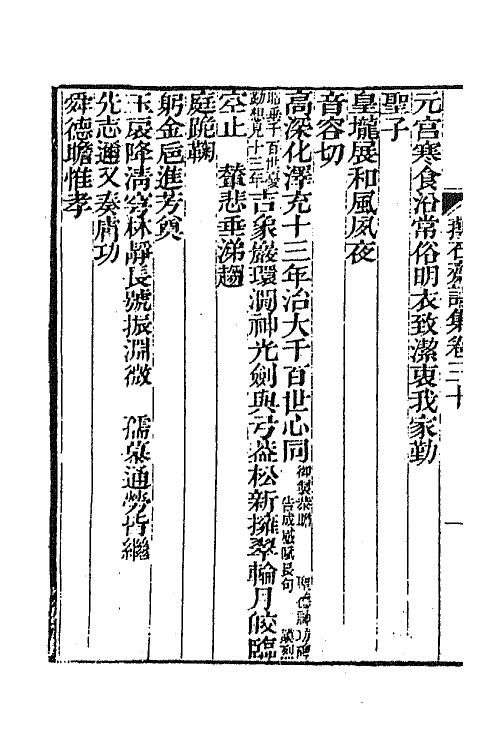 元宮寒食治常俗明衣致潔衷我家勤
聖子
皇壠展和風夙夜
音容切
高深化澤充十三年治大千百世心同御製恭瞻 聖德神功碑告成感賦長句 謨烈
昭垂千百世憂勤想見十三年吉象巖環澗神光劍與弓益松新擁翠輪月皎臨
空止 輦悲垂涕趨
庭跪鞠
躬金巵進芳奠
玉裒降淸穹林靜長號振淵微 孺慕通勞皆繼
先志邇又奏膚功
舜德瞻惟孝
籜石齋詩集卷三十
一